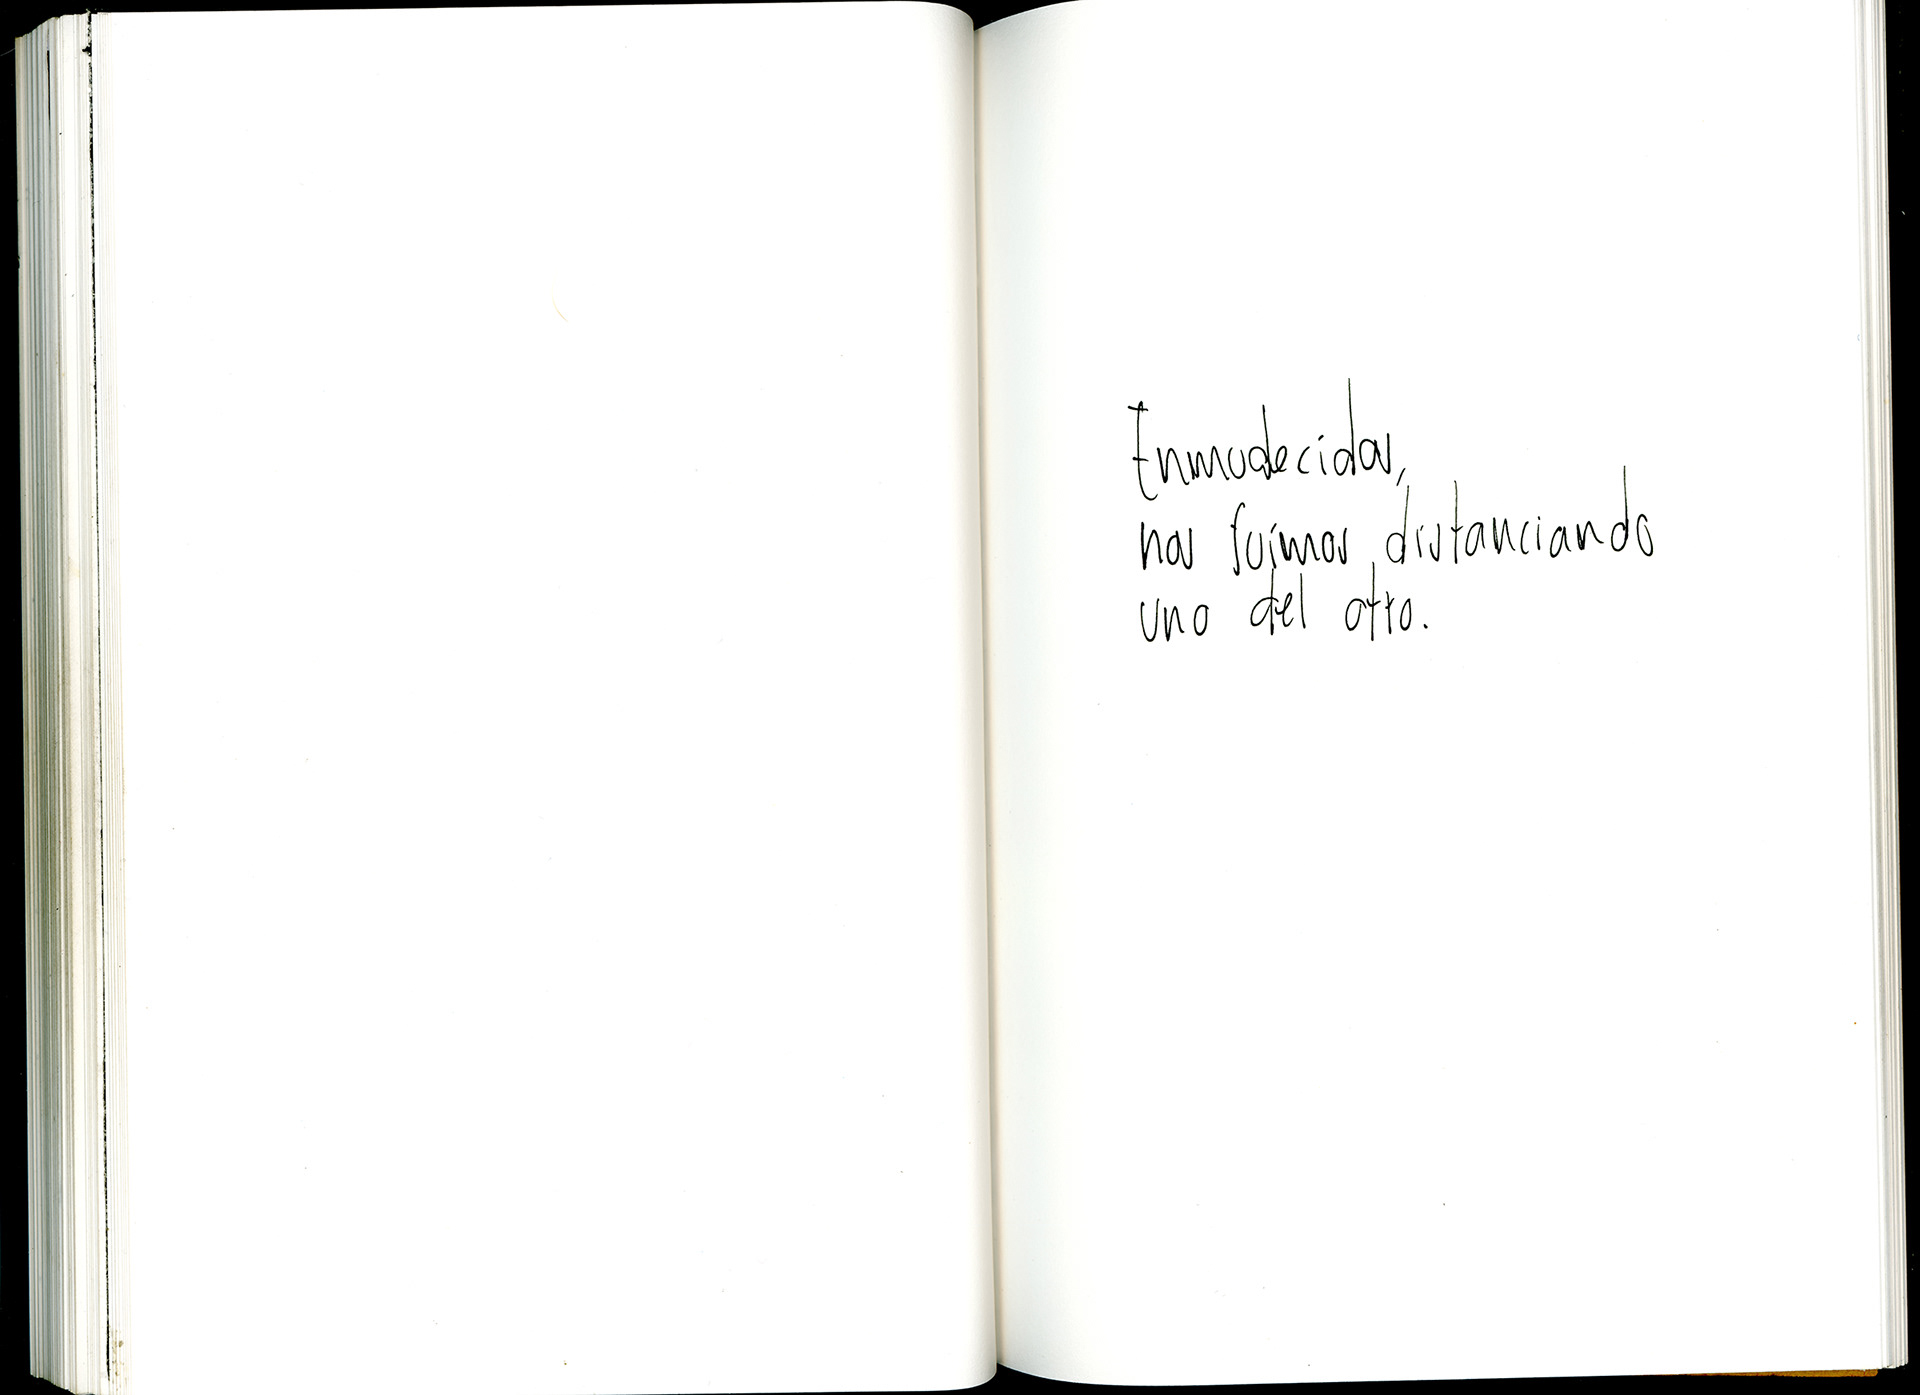 Enmudecidos,
nos fuímos distanciando
uno del otro.